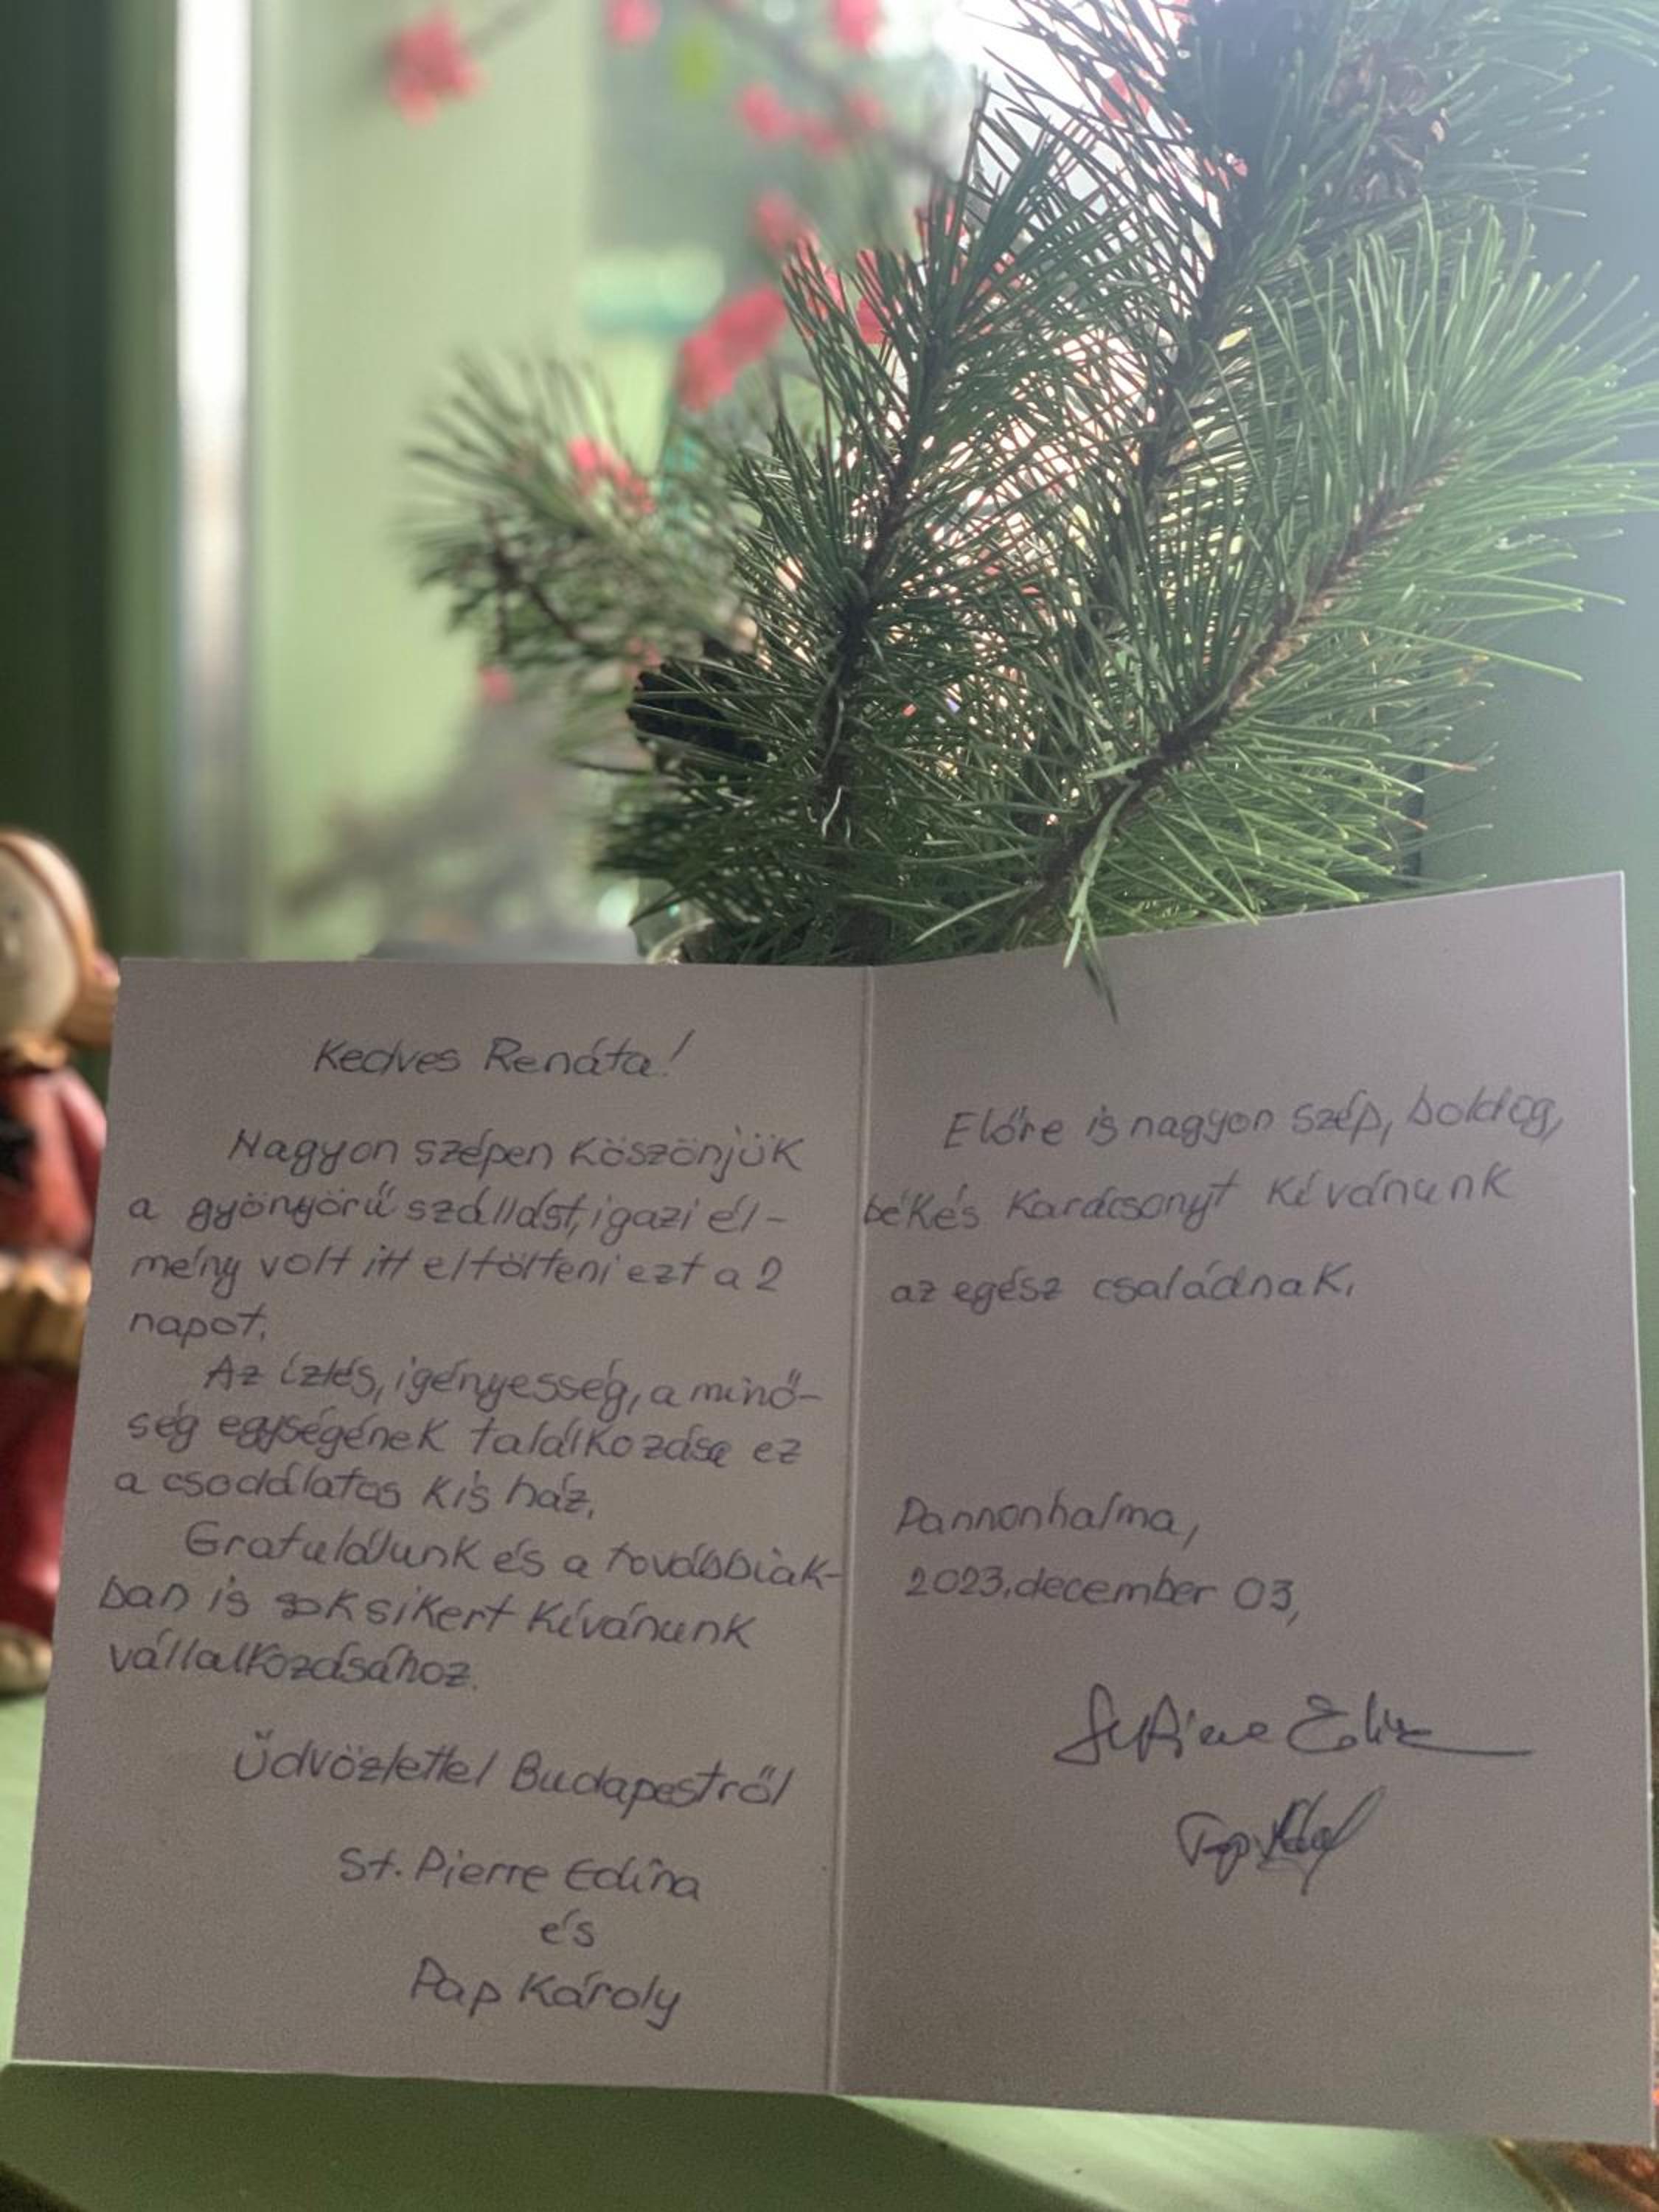 Kedves Renáta!
Nagyon szépen köszönjük
a gyönyörű szállást, igazi él-
mény volt itt eltölteni ezt a 2
napot.
Az ízlés, igényesség, a minő-
ség egységének találkozása ez
a csodálatos kis ház.
Gratulálunk és a továbbiak-
ban is sok sikert kívánunk
vállalkozásához.
Üdvözlettel Budapestről
St. Pierre Edina
és
Pap Károly
Előre is nagyon szép, boldog,
békés Karácsonyt kívánunk
az egész családnak.
Pannonhalma,
2023. december 03,
St Pierre Edina
Pap Károly